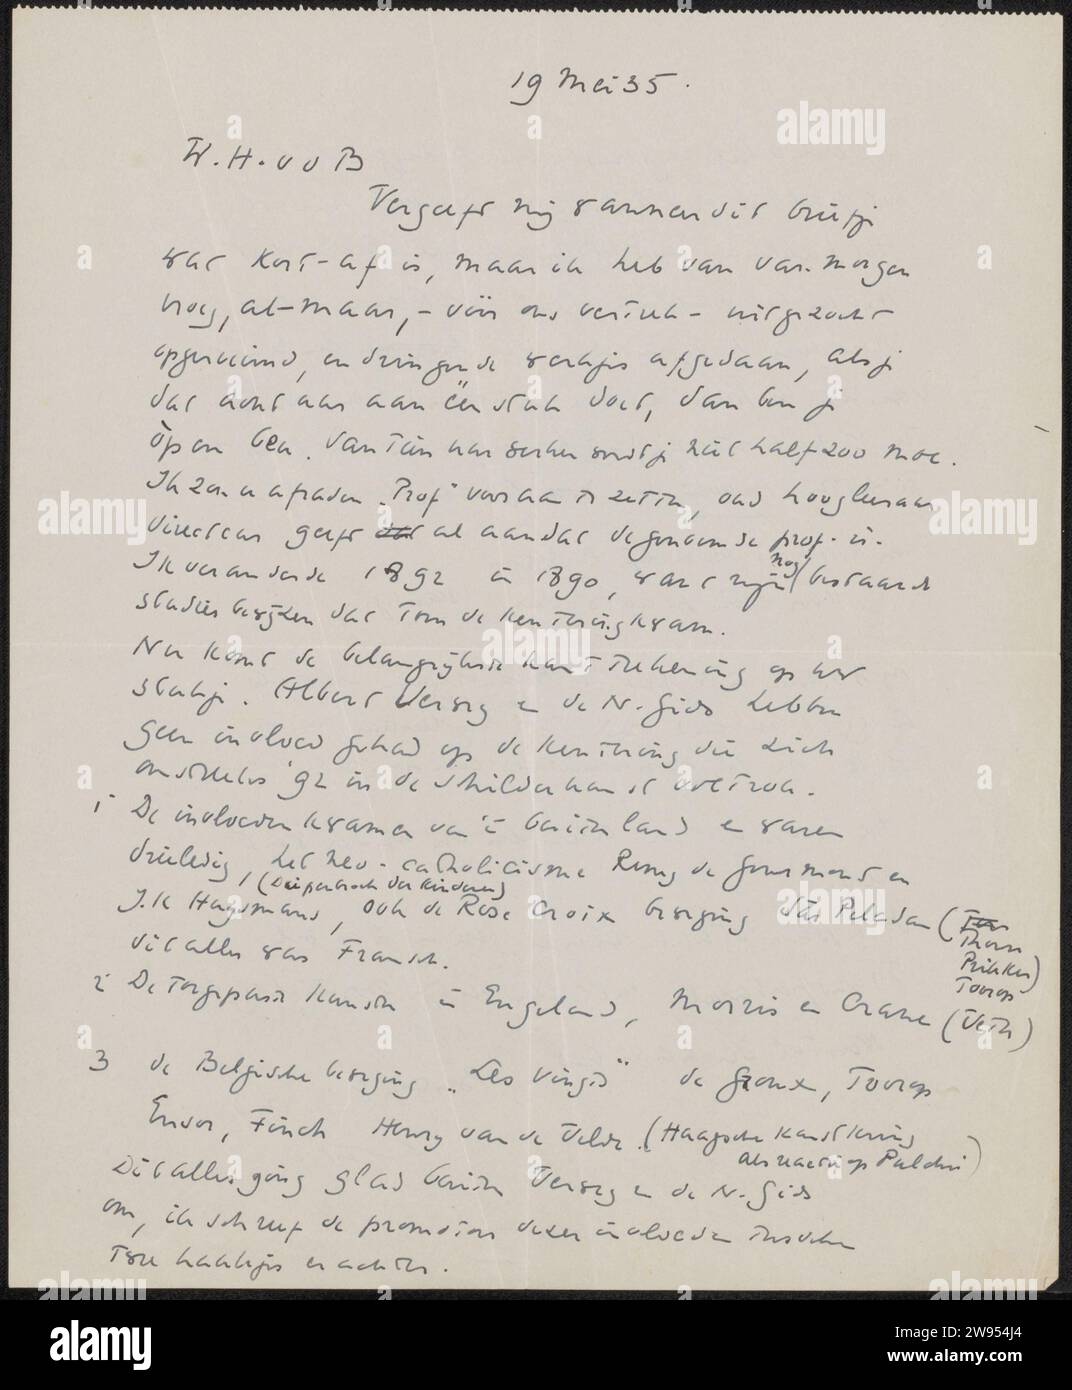 19 Mei 35.
W. H. v d B
Vergeeft mij wanneer dit briefje
wat kort-af is, maar ik heb van van-morgen
vroeg, al-maar, - vóór ons vertrek - uitgezocht
opgeruimd, en dringende werkjes afgedaan, als je
dat acht uur aan één stuk doet, dan ben je
op en
half zoo moe.
Ik zou afraden „Prof" vooraan te zetten, oud hoogleeraar
directeur geeft al aan dat de genoemde prof. is.
Ik veranderde 1892 in 1890, want mijn nog bestaande
studies bewijzen dat toen de kentering kwam.
Nu komt de belangrijkste kantteekening op uw
stukje. Albert Verwey en de N. Gids hebben
geen invloed gehad op de kentering die zich
omstreeks '92 in de schilderkunst voltrok.
1 De invloeden kwamen van 't buitenland en waren
drieledig, het neo-catholicisme Remy de Gourmont en
J. K Huysmans, (Diepenbrock der Kinderen) ook de Rose Croix beweging van Peladan (
Thorn
Prikker
Toorop)
dit alles was Fransch.
2 De toegepaste kunsten in Engeland, Morris en Crane (Veth)
3 de Belgische beweging „Les Vingts" de Groux, Toorop
Ensor, Finch Henry van de Velde. (Haagsche Kunstkring
als reactie op Pulchri)
Dit alles ging glad buiten Verwey en de N. Gids
om, ik schreef de promotors dezer invloeden tusschen
twee haakjes er achter.
alamy
Image ID: 2W954J4
www.alamy.com